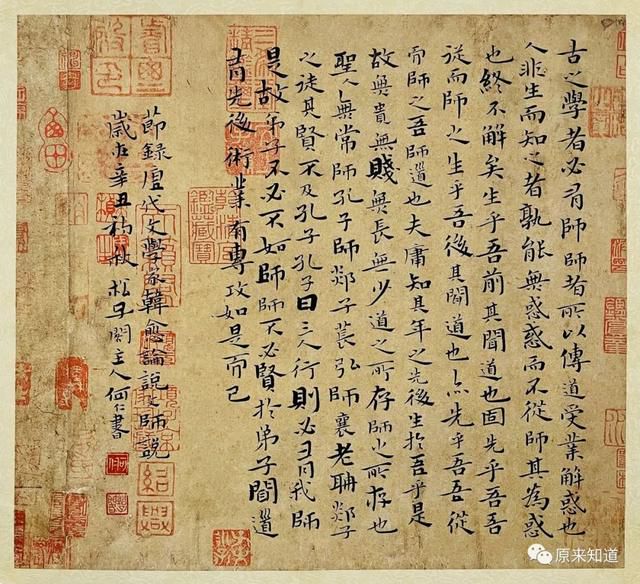 古之學者必有師師者所以傳道受業解惑也
人非生而知之者孰能無惑惑而不從師其為惑
也終不解矣生乎吾前其聞道也固先乎吾吾
從而師之生乎吾後其聞道也亦先乎吾吾從
而師之吾師道也夫庸知其年之先後生於吾乎是
故無貴無賤無長無少道之所存師之所存也
聖人無常師孔子師郯子萇弘師襄老聃郯子
之徒其賢不及孔子孔子曰三人行則必有我師
是故弟子不必不如師師不必賢於弟子聞道
有先後術業有專攻如是而已
節錄唐代文學家韓愈論說文師說
歲在辛丑初秋松閣主人何仁書
原来知道